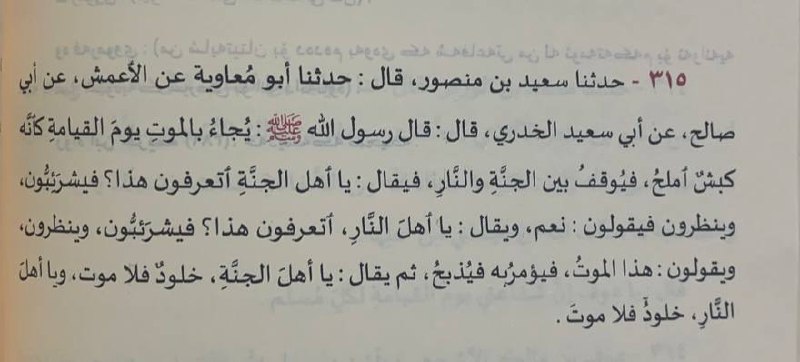 ٣١٥ - حدثنا سعيد بن منصور، قال: حدثنا أبو مُعاوية عن الأعمش، عن أبي
صالح، عن أبي سعيد الخدري، قال: قال رسول الله ﷺ: يُجاءُ بالموتِ يومَ القيامةِ كأنَّه
كبشٌ أملحُ، فيُوقفُ بين الجنَّةِ والنَّارِ، فيقال: يا أهل الجنَّةِ أتعرفون هذا؟ فيشرَئِبُّون،
وينظرون فيقولون: نعم، ويقال: يا أهلَ النَّارِ، أتعرفون هذا؟ فيشرَئبُّون، وينظرون،
ويقولون: هذا الموتُ، فيؤمر به فيُذبحُ، ثم يقال: يا أهلَ الجنَّةِ، خلودٌ فلا موت، ويا أهلَ
النَّارِ، خلودٌ فلا موتَ.